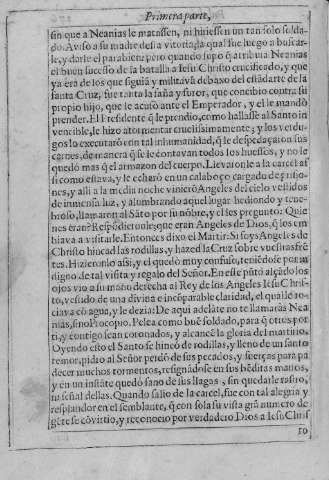 Primera parte,
sin que a Neanias le matassen, ni hiriessen vn tan solo solda-
do. Auiso a su madre desta vitoria, la qual fue luego a buscar-
le, y darle el parabien: pero quando supo q̃ atribuia Neanias
el buen sucesso de la batalla a Iesu Christo crucificado, y que
ya era de los que siguiã y militauã debaxo del estãdarte de la
santa Cruz, fue tanta la saña y furor, que concibio contra su
propio hijo, que le acusò ante el Emperador, y el le mandò
prender. El Presidente q̃ le prendio, como hallasse al Santo in
vencible, le hizo atormentar cruelissimamente; y los verdu-
gos lo executarõ con tal inhumanidad, q̃ le despedaçaron sus
carnes, de manera q̃ se le contauan todos los huessos, y no le
quedò mas q̃ el armazon del cuerpo. Lleuaronle a la carcel assi
si como estaua, y le echarõ en vn calaboço cargado de prisio-
nes, y alli a la media noche vinierõ Angeles del cielo vestidos
de inmensa luz, y alumbrando aquel lugar hediondo y tene-
broso, llamaron al Sãto por su nõbre, y el les preguntò: Quie
nes eran? Respõdierõle, que eran Angeles de Dios, q̃ los em
biaua a visitarle. Entonces dixo el Martir: Si soys Angeles de
Christo hincad las rodillas, y hazed la Cruz sobre vuestras frẽ
tes. Hizieronlo assi; y el quedò muy confuso, teniẽdose por in
digno de tal visita y regalo del Señor. En este pũto alçãdo los
ojos vio a su mano derecha al Rey de los Angeles Iesu Chris-
to, vestido de vna diuina e incõparable claridad, el qual le ro-
ciaua cõ agua, y le dezia: De aqui adelãte no te llamaràs Nea
nias, sino Procopio. Pelea como buẽ soldado, para q̃ otros por
ti, y contigo sean coronados, y alcancẽ la gloria del martirio.
Oyendo esto el Santo se hincò de rodillas, y lleno de vn santo
temor, pidio al Señor perdõ de sus pecados, y fuerças para pa
decer muchos tormentos, resignãdose en sus bẽditas manos,
y en vn instãte quedò sano de sus llagas, sin quedarle rastro,
ni señal dellas. Quando salio de la carcel, fue con tal alegria y
resplandor en el semblante, q̃ con sola su vista grã numero de
gẽte se cõvirtio, y reconocio por verdadero Dios a Iesu Chris
50